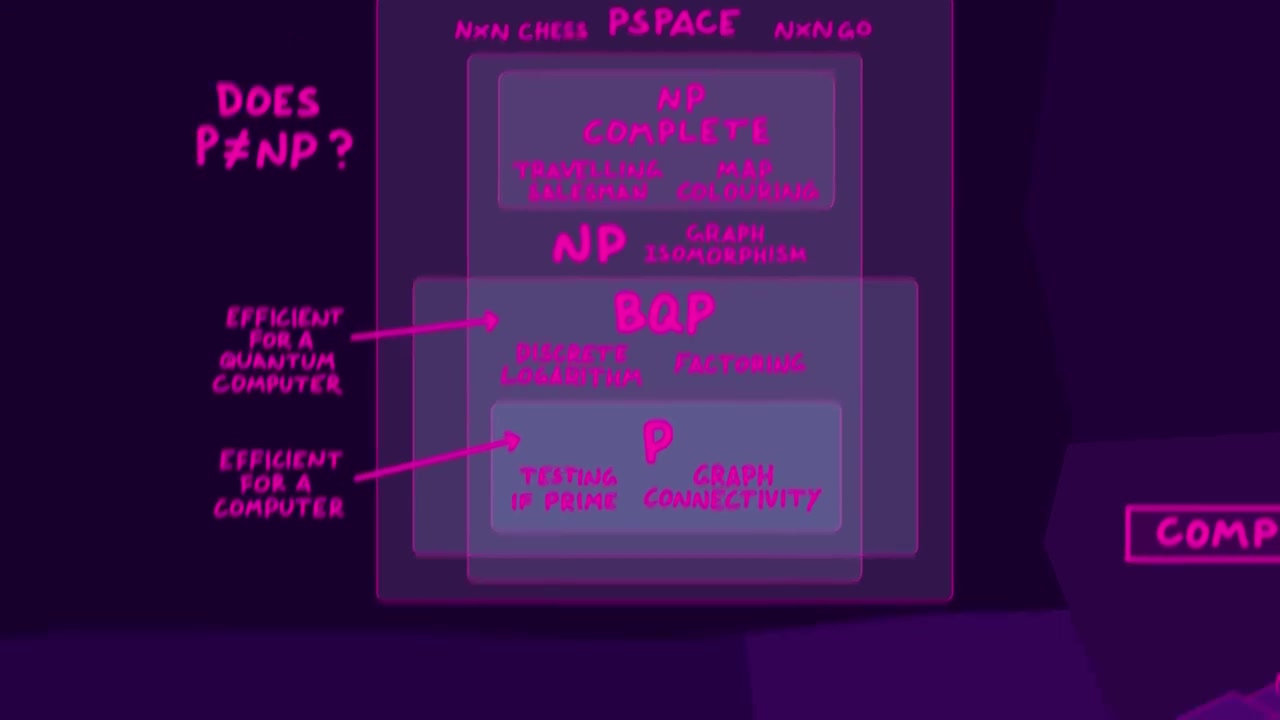 NXN CHESS PSPACE NXN GO
DOES
P≠NP?
NP
COMPLETE
TRAVELLING
SALESMAN
MAP
COLOURING
NP
GRAPH
ISOMORPHISM
BQP
EFFICIENT
FOR A
QUANTUM
COMPUTER
DISCRETE
LOGARITHM
FACTORING
P
EFFICIENT
FOR A
COMPUTER
TESTING
IF PRIME
GRAPH
CONNECTIVITY
COMP